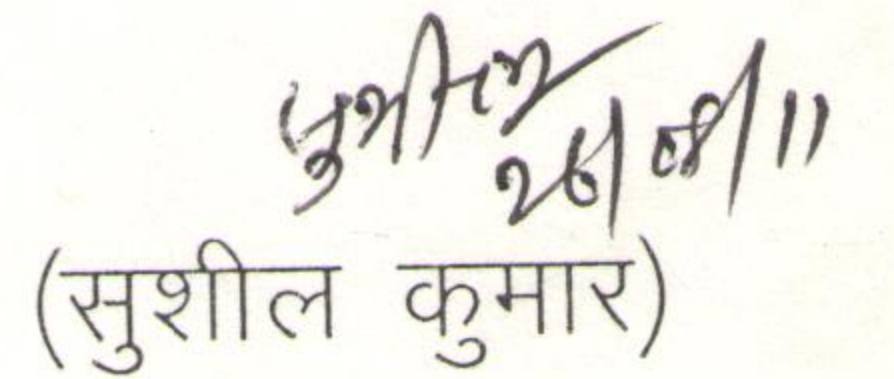 सुशील
26/08/11
(सुशील कुमार)